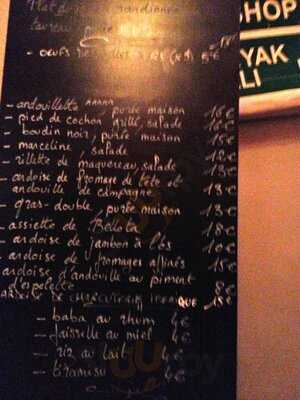 Plat du jour
taureau purée 18€
- oeufs 5€
- andouillette AAAAA, purée maison 16€
- pied de cochon grillé, salade 16€
- boudin noir, purée maison 15€
- marceline, salade 12€
- rillette de maquereau, salade 13€
- ardoise de fromage de tête et
andouille de campagne 13€
- gras-double, purée maison 13€
- assiette de Bellota 18€
- ardoise de jambon à l'os 10€
- ardoise de fromages affinés 15€
ardoise d'andouille au piment
d'espelette 8€
ARDOISE DE CHARCUTERIE IBERIQUE 15€
- baba au rhum 4€
- faisselle au miel 4€
- riz au lait 4€
- tiramisu 4€
SHOP
YAK
ALI